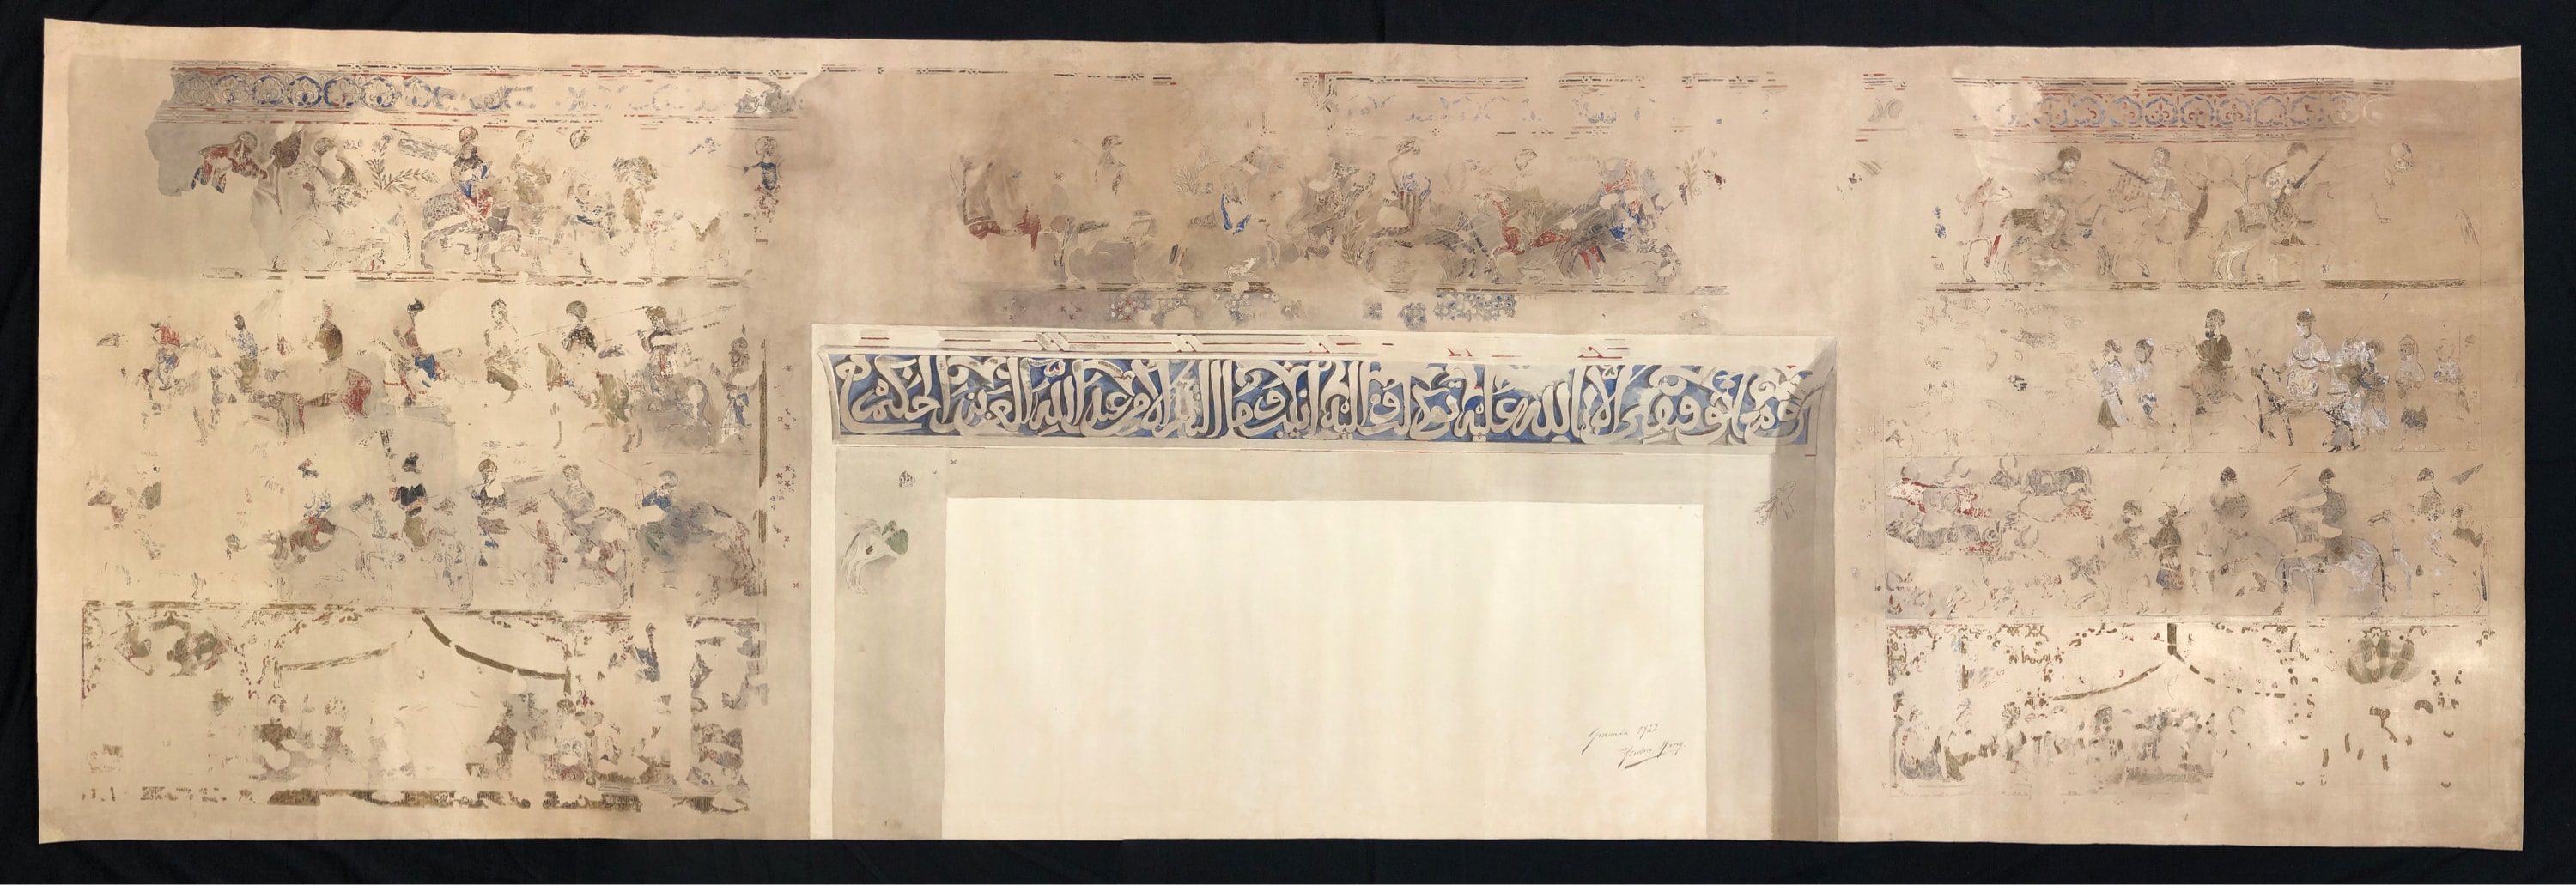 وما توفيقي إلا بالله عليه توكلت وإليه أنيب وما النصر إلا من عند الله العزيز الحكيم
Granada 1922